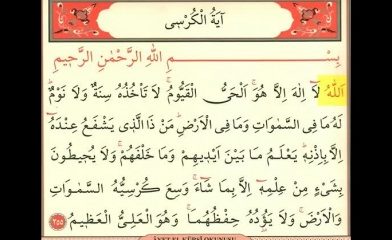 اٰيَةُ الْكُرْسِى
بِسْمِ اللّٰهِ الرَّحْمٰنِ الرَّحِيمِ
اَللّٰهُ لَٓا اِلٰهَ اِلَّا هُوَۚ اَلْحَىُّ الْقَيُّومُۚ لَا تَأْخُذُهُ سِنَةٌ وَلَا نَوْمٌۜ
لَهُ مَا فِى السَّمٰوَاتِ وَمَا فِى الْاَرْضِۜ مَنْ ذَا الَّذِى يَشْفَعُ عِنْدَهُٓ
اِلَّا بِاِذْنِهِۜ يَعْلَمُ مَا بَيْنَ اَيْدِيهِمْ وَمَا خَلْفَهُمْۚ وَلَا يُحِيطُونَ
بِشَىْءٍ مِنْ عِلْمِهِٓ اِلَّا بِمَا شَٓاءَۚ وَسِعَ كُرْسِيُّهُ السَّمٰوَاتِ
وَالْاَرْضَۚ وَلَا يَؤُدُهُ حِفْظُهُمَاۚ وَهُوَ الْعَلِىُّ الْعَظِيمُ ﴿٢٥٥﴾
AYET EL KÜRSİ OKUNUŞU